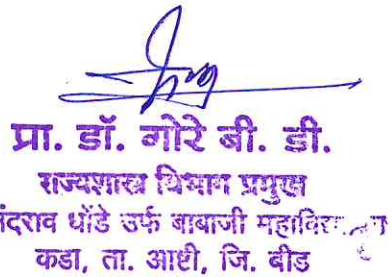 प्रा. डॉ. गोरे बी. डी.
राज्यशास्त्र विभाग प्रमुख
नंदराव धोंडे उर्फ बाबाजी
कडा, ता. आष्टी, जि. बीड